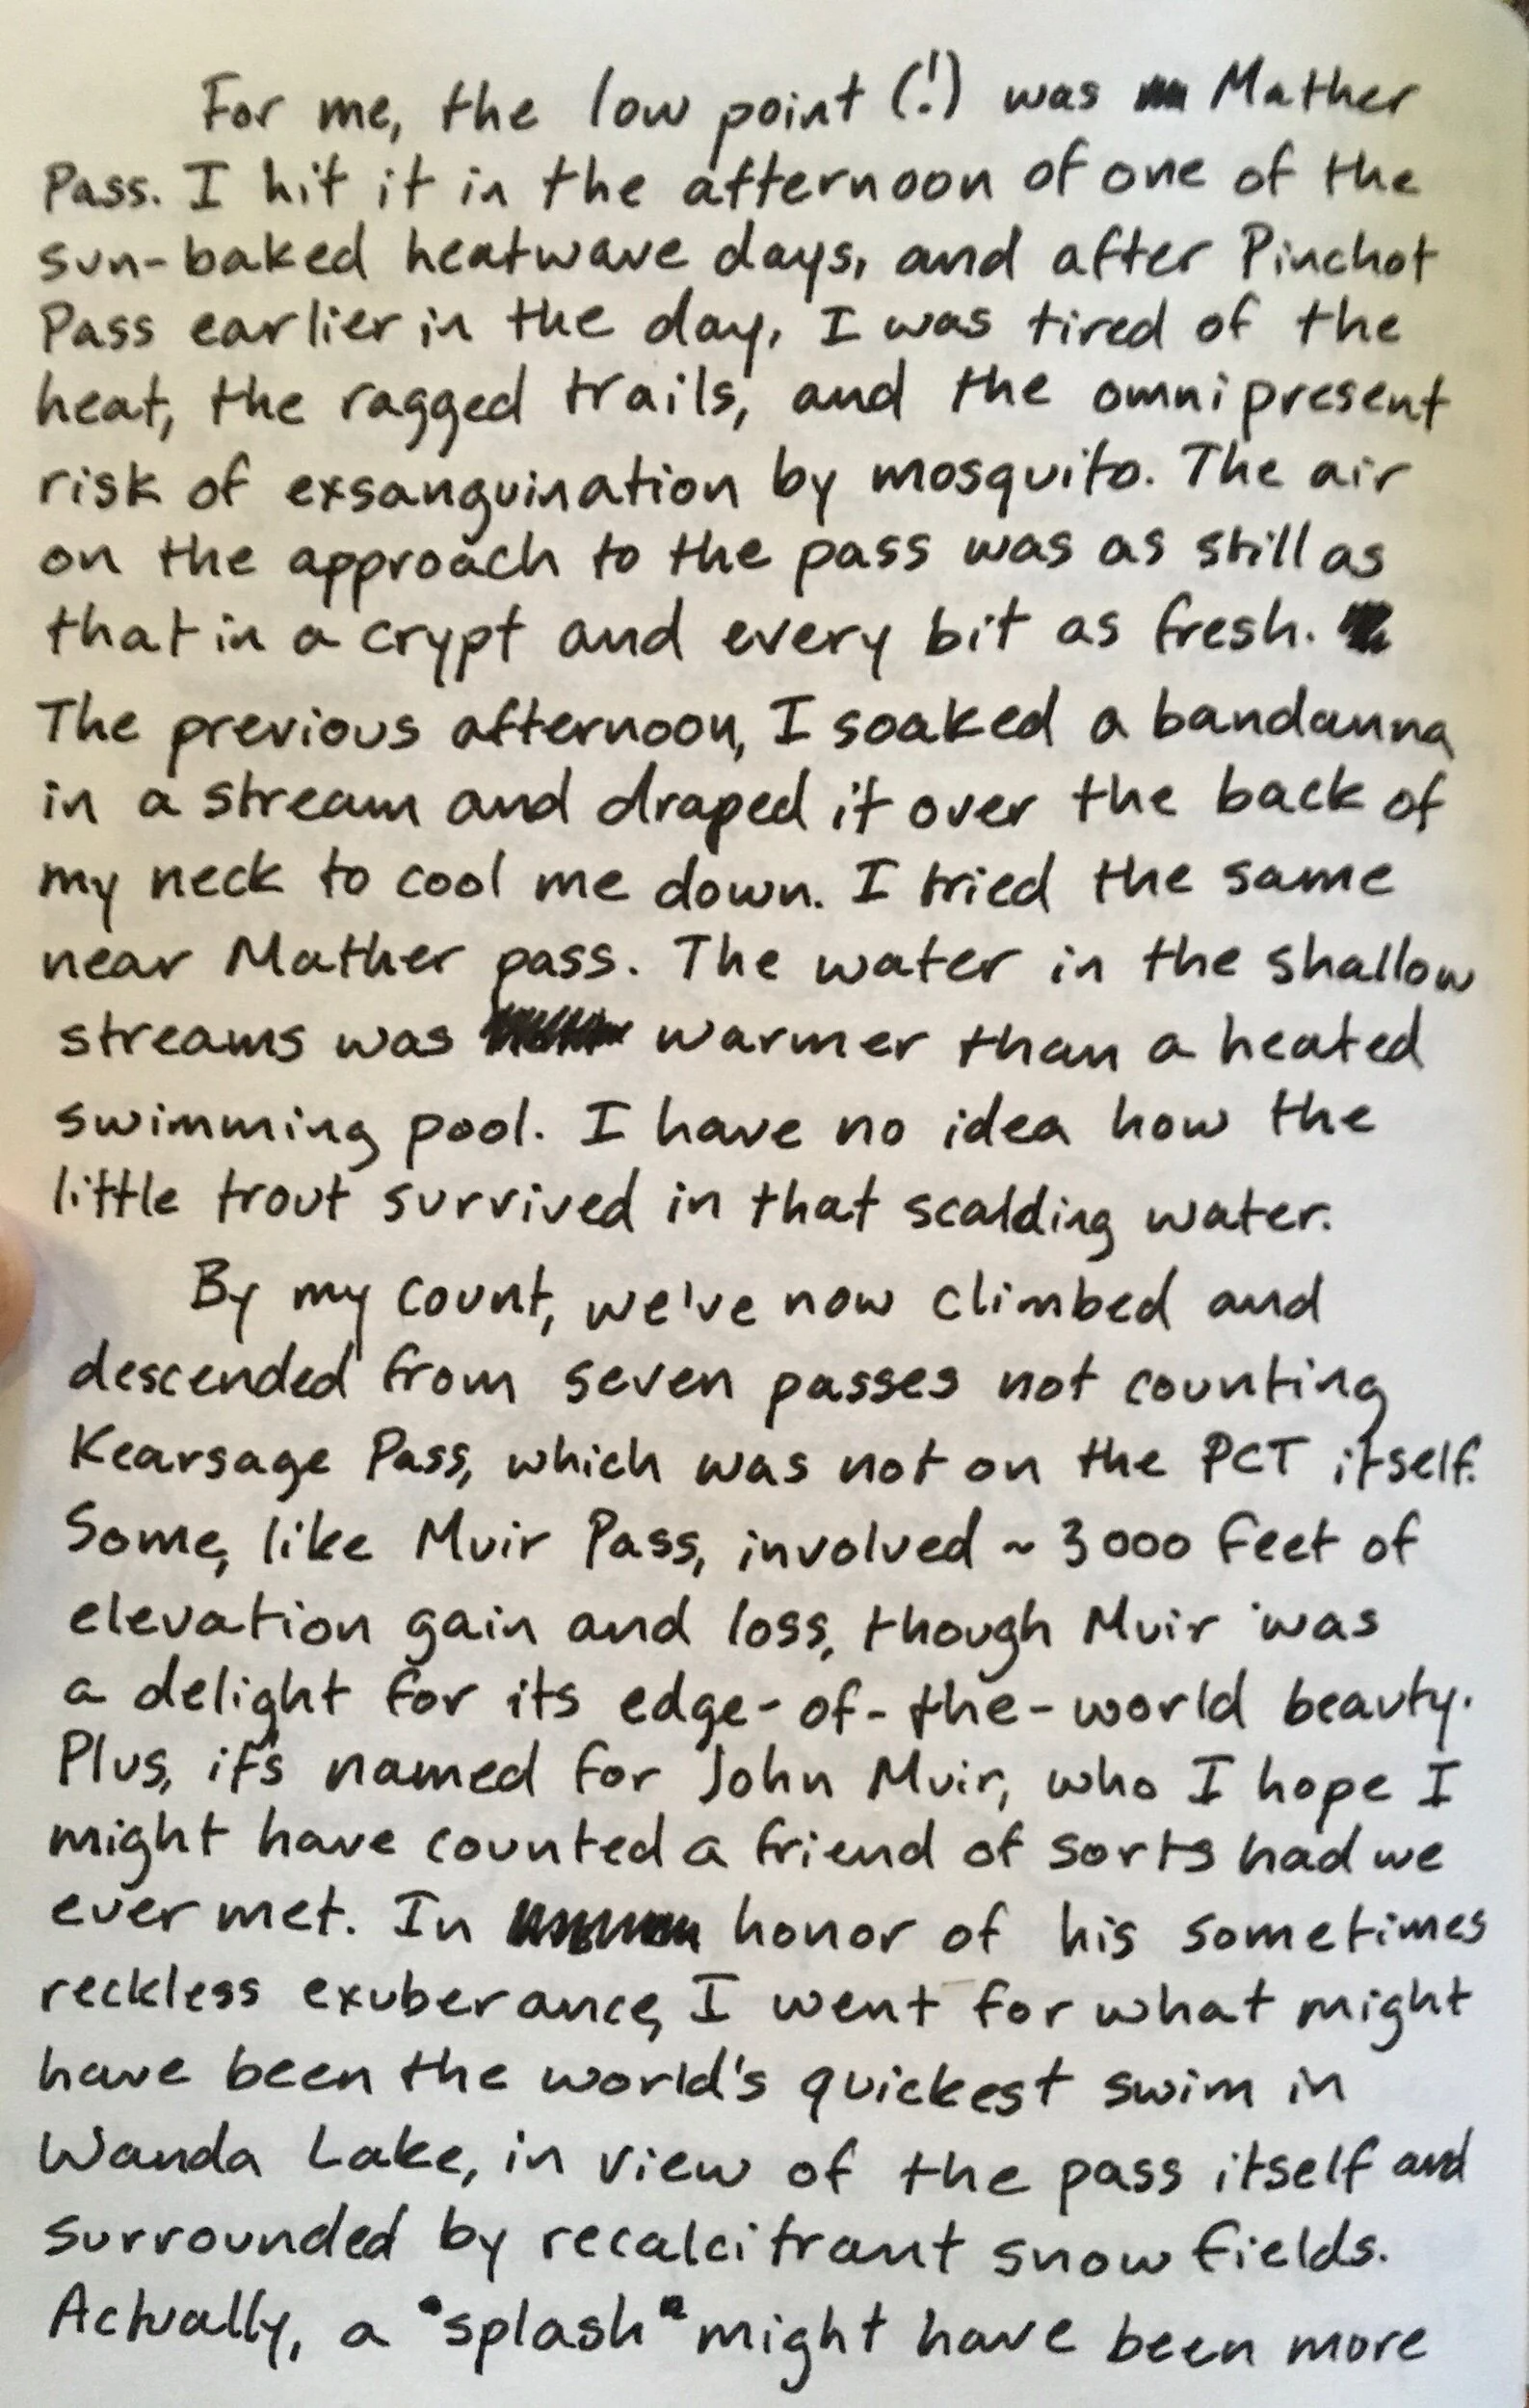 For me, the low point (!) was Mather
Pass. I hit it in the afternoon of one of the
sun-baked heatwave days, and after Pinchot
Pass earlier in the day, I was tired of the
heat, the ragged trails, and the omnipresent
risk of exsanguination by mosquito. The air
on the approach to the pass was as still as
that in a crypt and every bit as fresh.
The previous afternoon, I soaked a bandanna
in a stream and draped it over the back of
my neck to cool me down. I tried the same
near Mather pass. The water in the shallow
streams was warmer than a heated
swimming pool. I have no idea how the
little trout survived in that scalding water.
By my count, we've now climbed and
descended from seven passes not counting
Kearsage Pass, which was not on the PCT itself.
Some, like Muir Pass, involved ~3000 feet of
elevation gain and loss, though Muir was
a delight for its edge-of-the-world beauty.
Plus, it's named for John Muir, who I hope I
might have counted a friend of sorts had we
ever met. In honor of his sometimes
reckless exuberance, I went for what might
have been the world's quickest swim in
Wanda Lake, in view of the pass itself and
surrounded by recalcitrant snow fields.
Actually, a "splash" might have been more